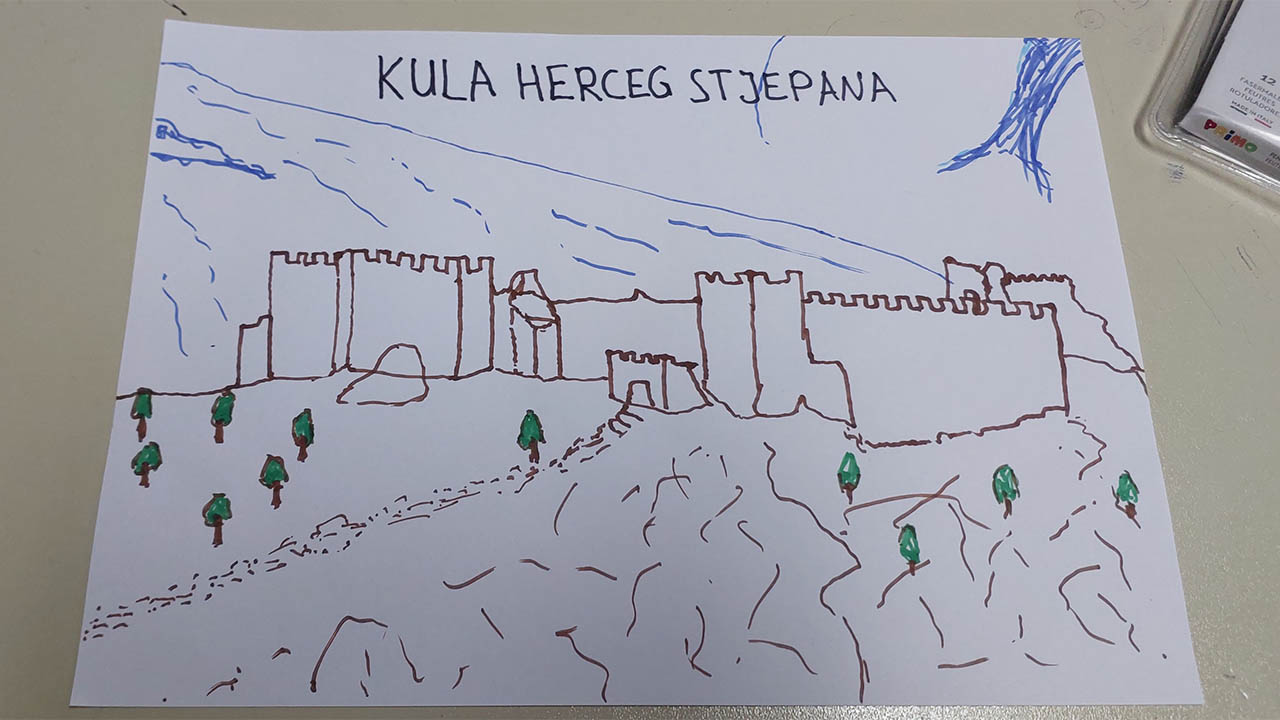 KULA HERCEG STJEPANA
12
FASERMALER
FEUTRES
ROTULADORES
MADE IN ITALY
PRIMO